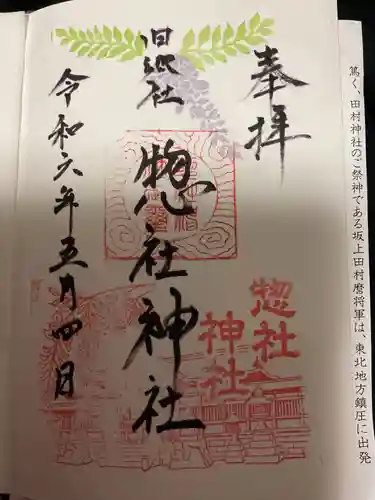 篤く、田村神社のご祭神である坂上田村麿将軍は、東北地方鎮圧に出発
奉拝
旧縣社
惣社神社
惣社
神社
令和六年五月四日